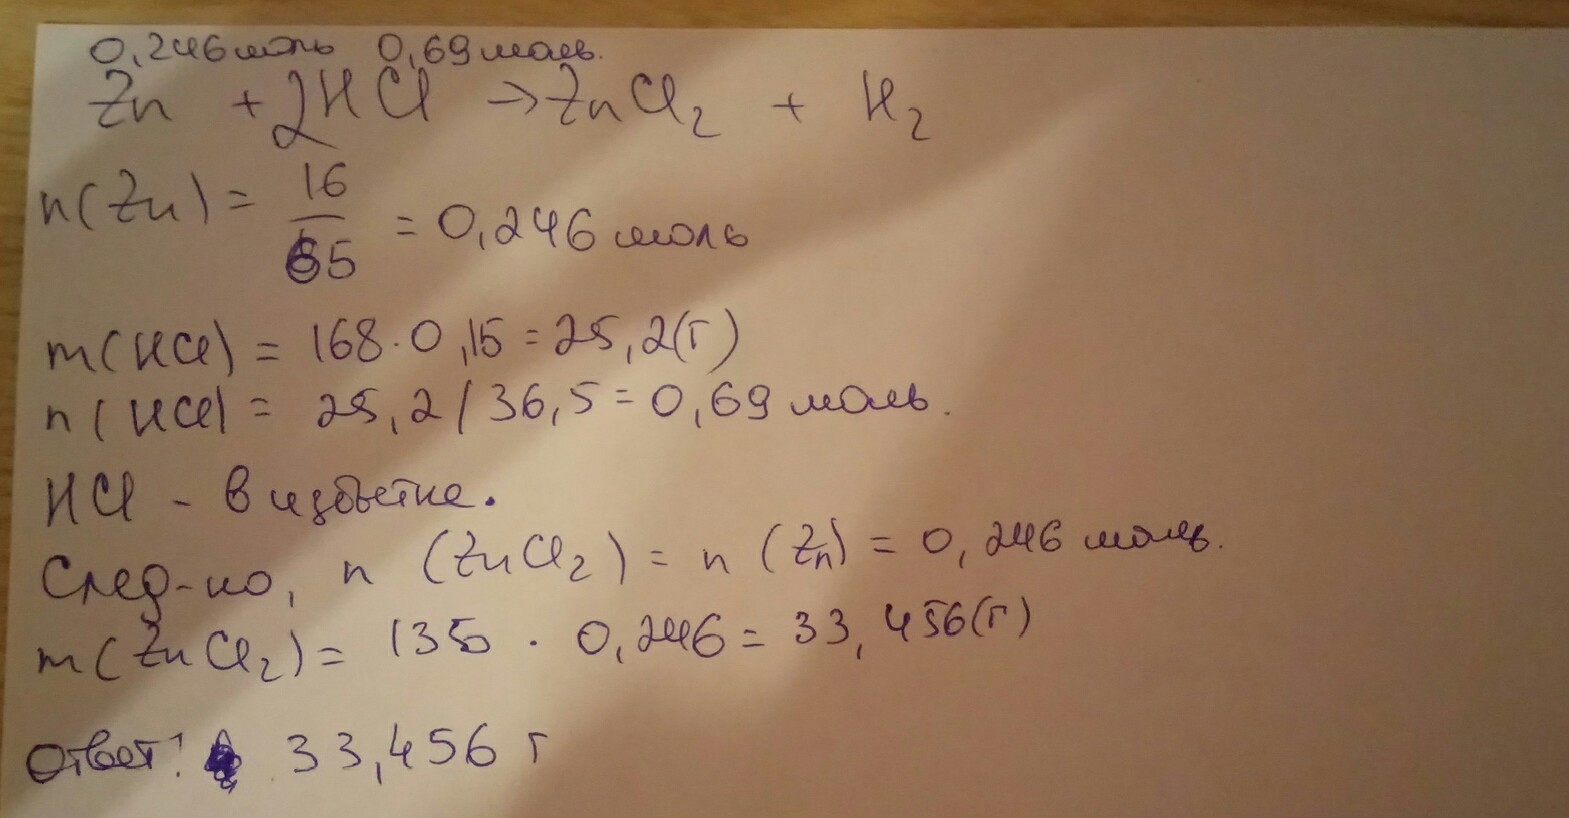 0,246 моль 0,69 моль.
Zn + 2HCl → ZnCl₂ + H₂
n(Zn) = 16/65 = 0,246 моль
m(HCl) = 168·0,15 = 25,2(г)
n(HCl) = 25,2/36,5 = 0,69 моль.
HCl - в избытке.
След-но, n (ZnCl₂) = n (Zn) = 0,246 моль.
m(ZnCl₂) = 136 · 0,246 = 33,456(г)
Ответ: 33,456 г